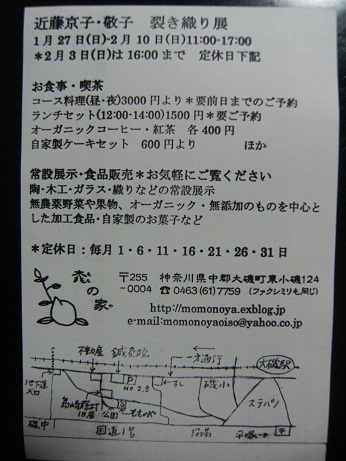 近藤京子・敬子 裂き織り展
1月27日(日)-2月10日(日)11:00-17:00
*2月3日(日)は16時まで 定休日下記
お食事・喫茶
コース料理(昼・夜)3000円より*要前日までのご予約
ランチセット(12:00-14:00)1500円*要ご予約
オーガニックコーヒー・紅茶 各400円
自家製ケーキセット 600円より ほか
常設展示・食品販売*お気軽にご覧ください
陶・木工・ガラス・織りなどの常設展示
無農薬野菜や果物、オーガニック・無添加のものを中心と
した加工食品・自家製のお菓子など
*定休日:毎月1・6・11・16・21・26・31日
の家
〒255-0004 神奈川県中郡大磯町東小磯124
☎ 0463(61)7759 (ファクシミリも同じ)
http://momonoya.exblog.jp
e-mail:momonoyaoiso@yahoo.co.jp
不動産 鍼灸院 一方通行 大磯駅
地下道
入口
P
No.2.3
すし
磯小
ステパン
旧邸
公園
もものや
磯中
国道1号
平塚